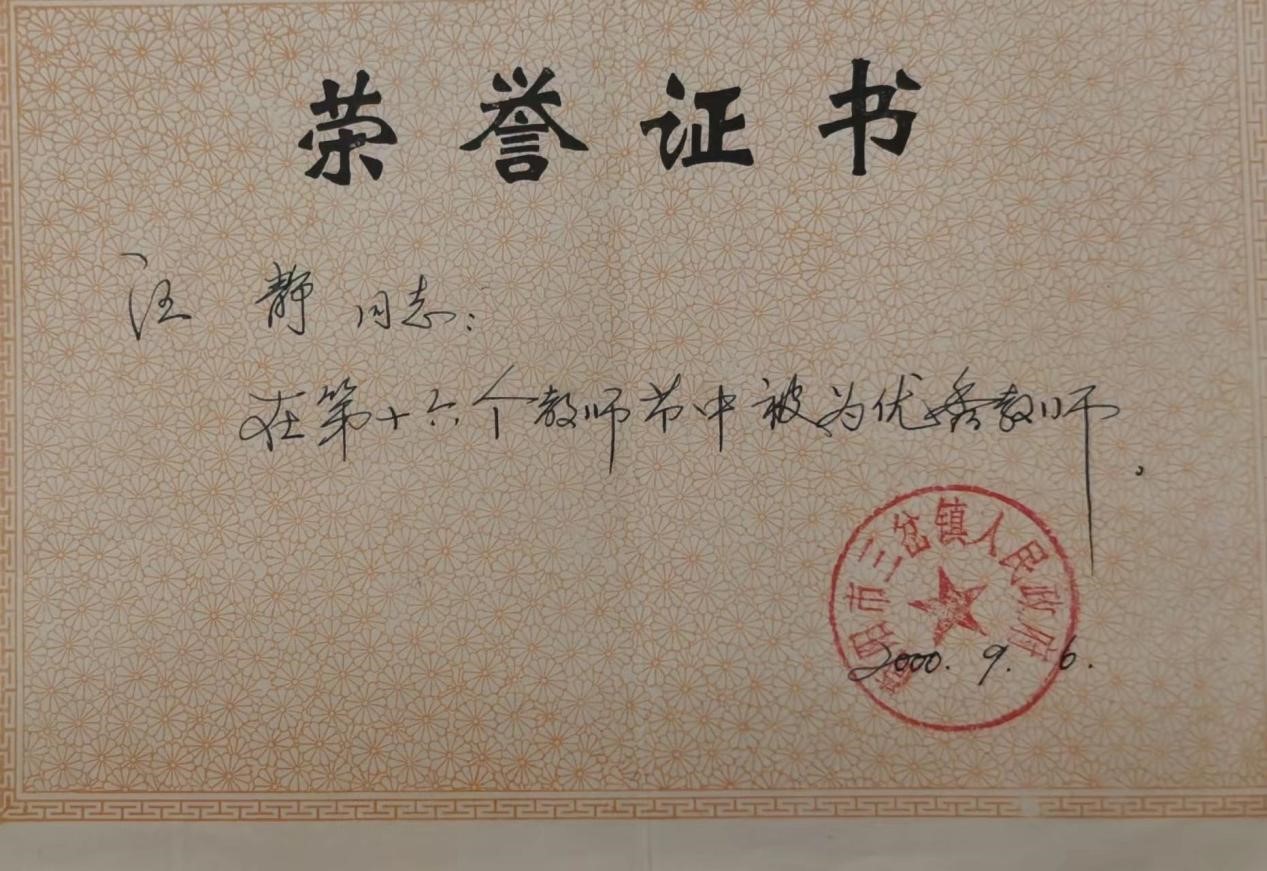 荣誉证书
汪静同志：
在第十六个教师节中被为优秀教师。
阳市三岔镇人民政府
2000.9.6.